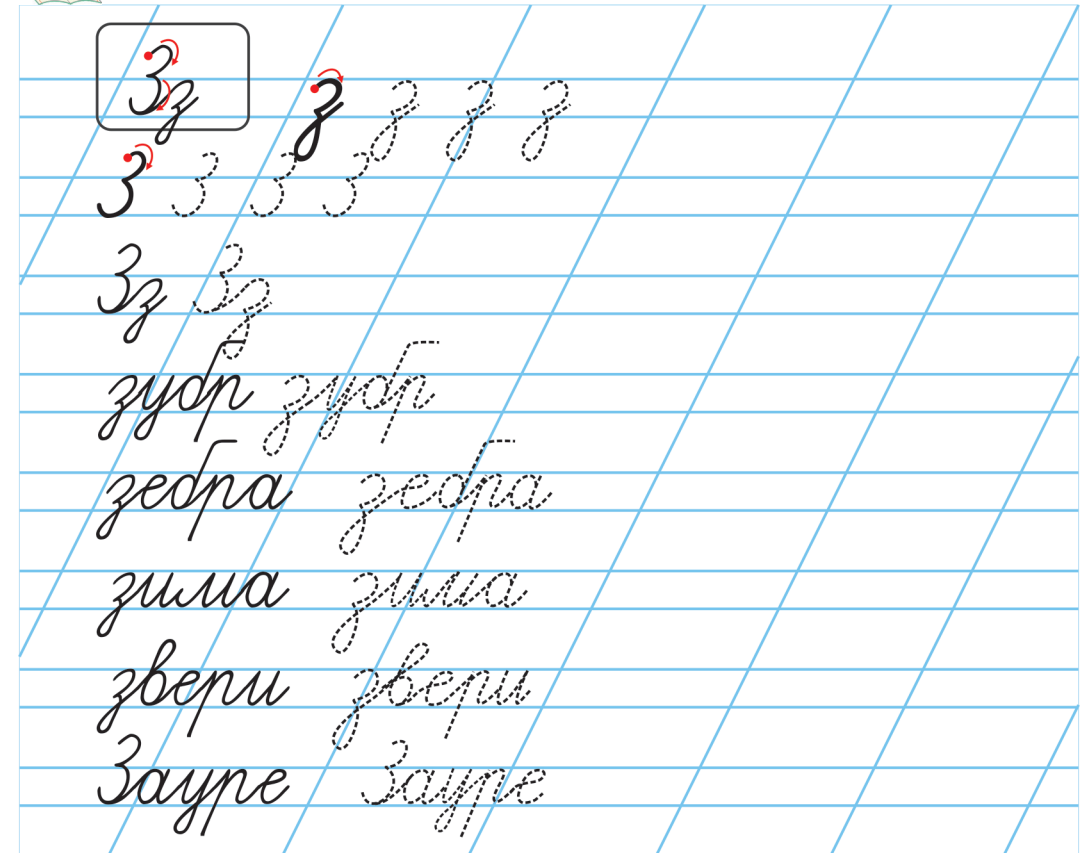 Зз з з з з
З З З З
Зз Зз
зубр зубр
зебра зебра
зима зима
звери звери
Зауре Зауре